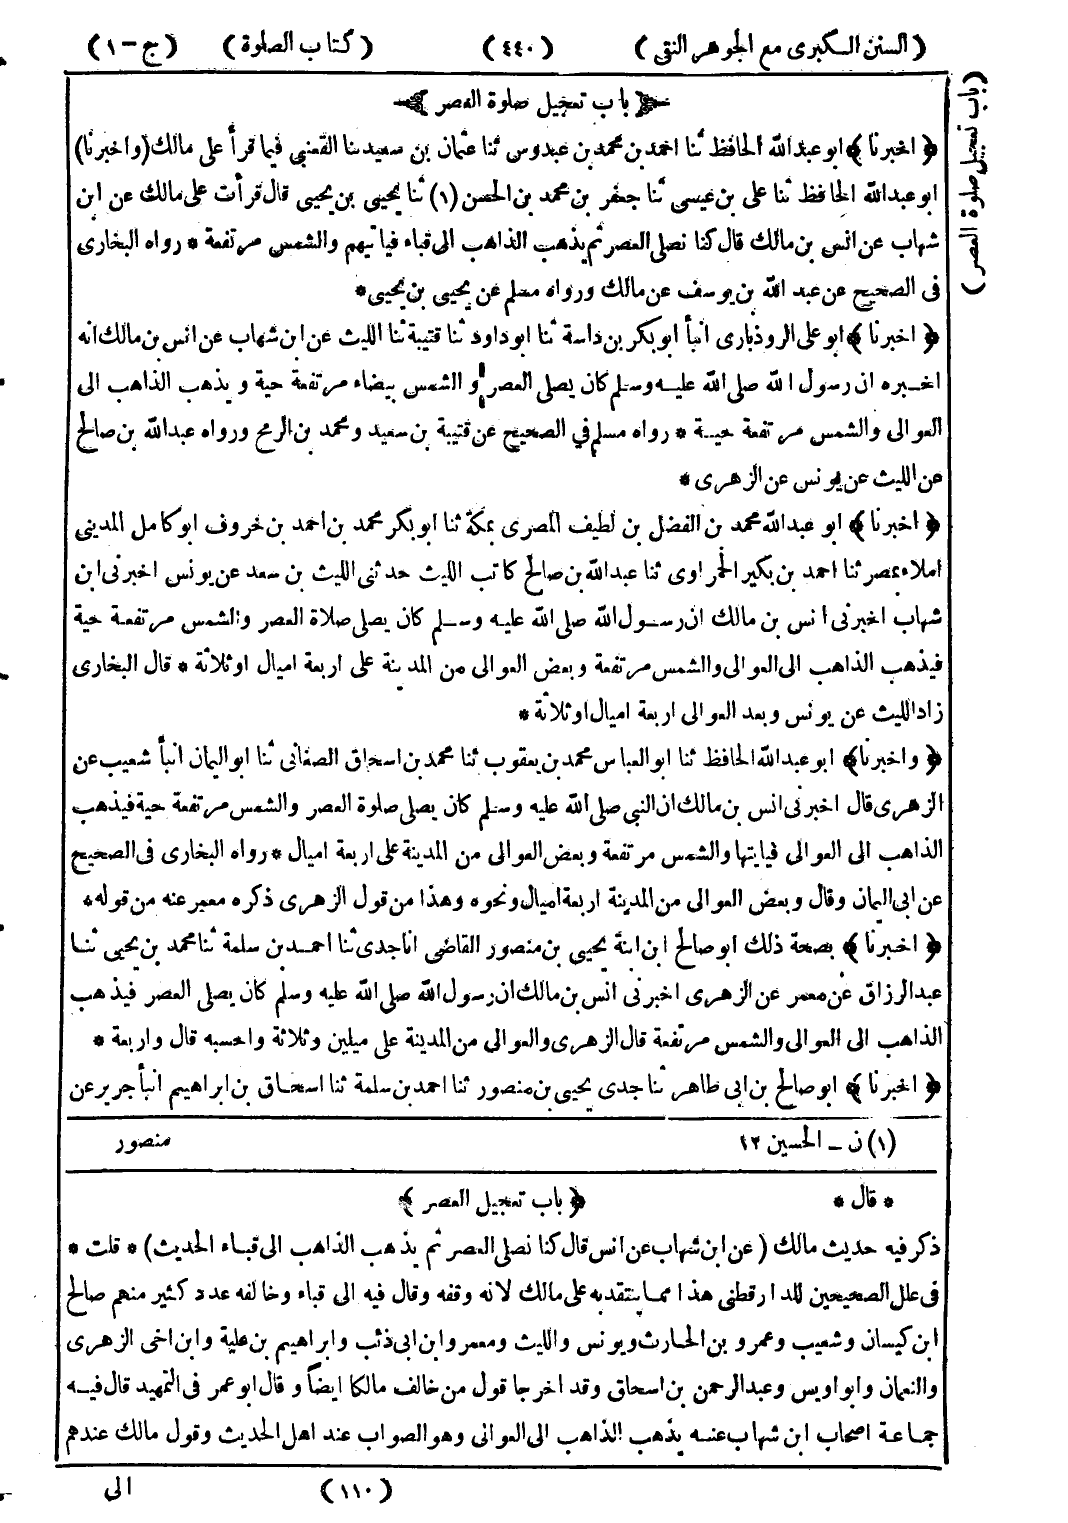 ( السنن الكبرى مع الجوهر النقى ) ( ٤٤٠ ) ( كتاب الصلوة ) ( ج - ١ )
( باب تعجيل صلوة العصر )
باب تعجيل صلوة العصر
﴿ اخبرنا ﴾ ابو عبدالله الحافظ ثنا احمد بن محمد بن عبدوس ثنا عثمان بن سعيد ثنا القعنبى فيما قرأ على مالك (واخبرنا)
ابو عبدالله الحافظ ثنا على بن عيسى ثنا جعفر بن محمد بن الحسن (١) ثنا يحيى بن يحيى قال قرأت على مالك عن ابن
شهاب عن انس بن مالك قال كنا نصلى العصر ثم يذهب الذاهب الى قباء فيأتيهم والشمس مرتفعة * رواه البخارى
فى الصحيح عن عبد الله بن يوسف عن مالك ورواه مسلم عن يحيى بن يحيى *
﴿ اخبرنا ﴾ ابو على الروذبارى انبأ ابو بكر بن داسة ثنا ابو داود ثنا قتيبة ثنا الليث عن ابن شهاب عن انس بن مالك انه
اخبره ان رسول الله صلى الله عليه وسلم كان يصلى العصر و الشمس بيضاء مرتفعة حية و يذهب الذاهب الى
العوالى والشمس مرتفعة حية * رواه مسلم فى الصحيح عن قتيبة بن سعيد ومحمد بن الرمح ورواه عبدالله بن صالح
عن الليث عن يونس عن الزهرى *
﴿ اخبرنا ﴾ ابو عبدالله محمد بن الفضل بن لطيف المصرى بمكة ثنا ابو بكر محمد بن احمد بن خروف ابو كامل المدينى
املاء بمصر ثنا احمد بن بكير الحمراوى ثنا عبدالله بن صالح كاتب الليث حدثنى الليث بن سعد عن يونس اخبرنى ابن
شهاب اخبرنى انس بن مالك ان رسول الله صلى الله عليه وسلم كان يصلى صلاة العصر والشمس مرتفعة حية
فيذهب الذاهب الى العوالى والشمس مرتفعة وبعض العوالى من المدينة على اربعة اميال او ثلاثة * قال البخارى
زاد الليث عن يونس وبعد العوالى اربعة اميال او ثلاثة *
﴿ واخبرنا ﴾ ابو عبدالله الحافظ ثنا ابو العباس محمد بن يعقوب ثنا محمد بن اسحاق الصغانى ثنا ابو اليمان انبأ شعيب عن
الزهرى قال اخبرنى انس بن مالك ان النبى صلى الله عليه وسلم كان يصلى صلوة العصر والشمس مرتفعة حية فيذهب
الذاهب الى العوالى فيأيتها والشمس مرتفعة وبعض العوالى من المدينة على اربعة اميال * رواه البخارى فى الصحيح
عن ابى اليمان وقال وبعض العوالى من المدينة اربعة اميال ونحوه وهذا من قول الزهرى ذكره معمر عنه من قوله *
﴿ اخبرنا ﴾ بصحة ذلك ابو صالح ابن ابنة يحيى بن منصور القاضى انا جدى ثنا احمد بن سلمة ثنا محمد بن يحيى ثنا
عبدالرزاق عن معمر عن الزهرى اخبرنى انس بن مالك ان رسول الله صلى الله عليه وسلم كان يصلى العصر فيذهب
الذاهب الى العوالى والشمس مرتفعة قال الزهرى والعوالى من المدينة على ميلين وثلاثة واحسبه قال واربعة *
﴿ اخبرنا ﴾ ابو صالح بن ابى طاهر ثنا جدى يحيى بن منصور ثنا احمد بن سلمة ثنا اسحاق بن ابراهيم انبأ جرير عن
(١) ن ـ الحسين ١٢ منصور
* قال * ﴿ باب تعجيل العصر ﴾
ذكر فيه حديث مالك ( عن ابن شهاب عن انس قال كنا نصلى العصر ثم يذهب الذاهب الى قباء الحديث ) * قلت *
فى علل الصحيحين للدارقطنى هذا مما ينتقد به على مالك لانه وقفه وقال فيه الى قباء وخالفه عدد كثير منهم صالح
ابن كيسان وشعيب وعمرو بن الحارث ويونس والليث ومعمر وابن ابى ذئب وابراهيم بن علية وابن اخى الزهرى
والنعمان وابو اويس وعبدالرحمن بن اسحاق وقد اخرجا قول من خالف مالكا ايضاً و قال ابو عمر فى التمهيد قال فيه
جماعة اصحاب ابن شهاب عنه يذهب الذاهب الى العوالى وهو الصواب عند اهل الحديث وقول مالك عندهم
( ١١٠ ) الى